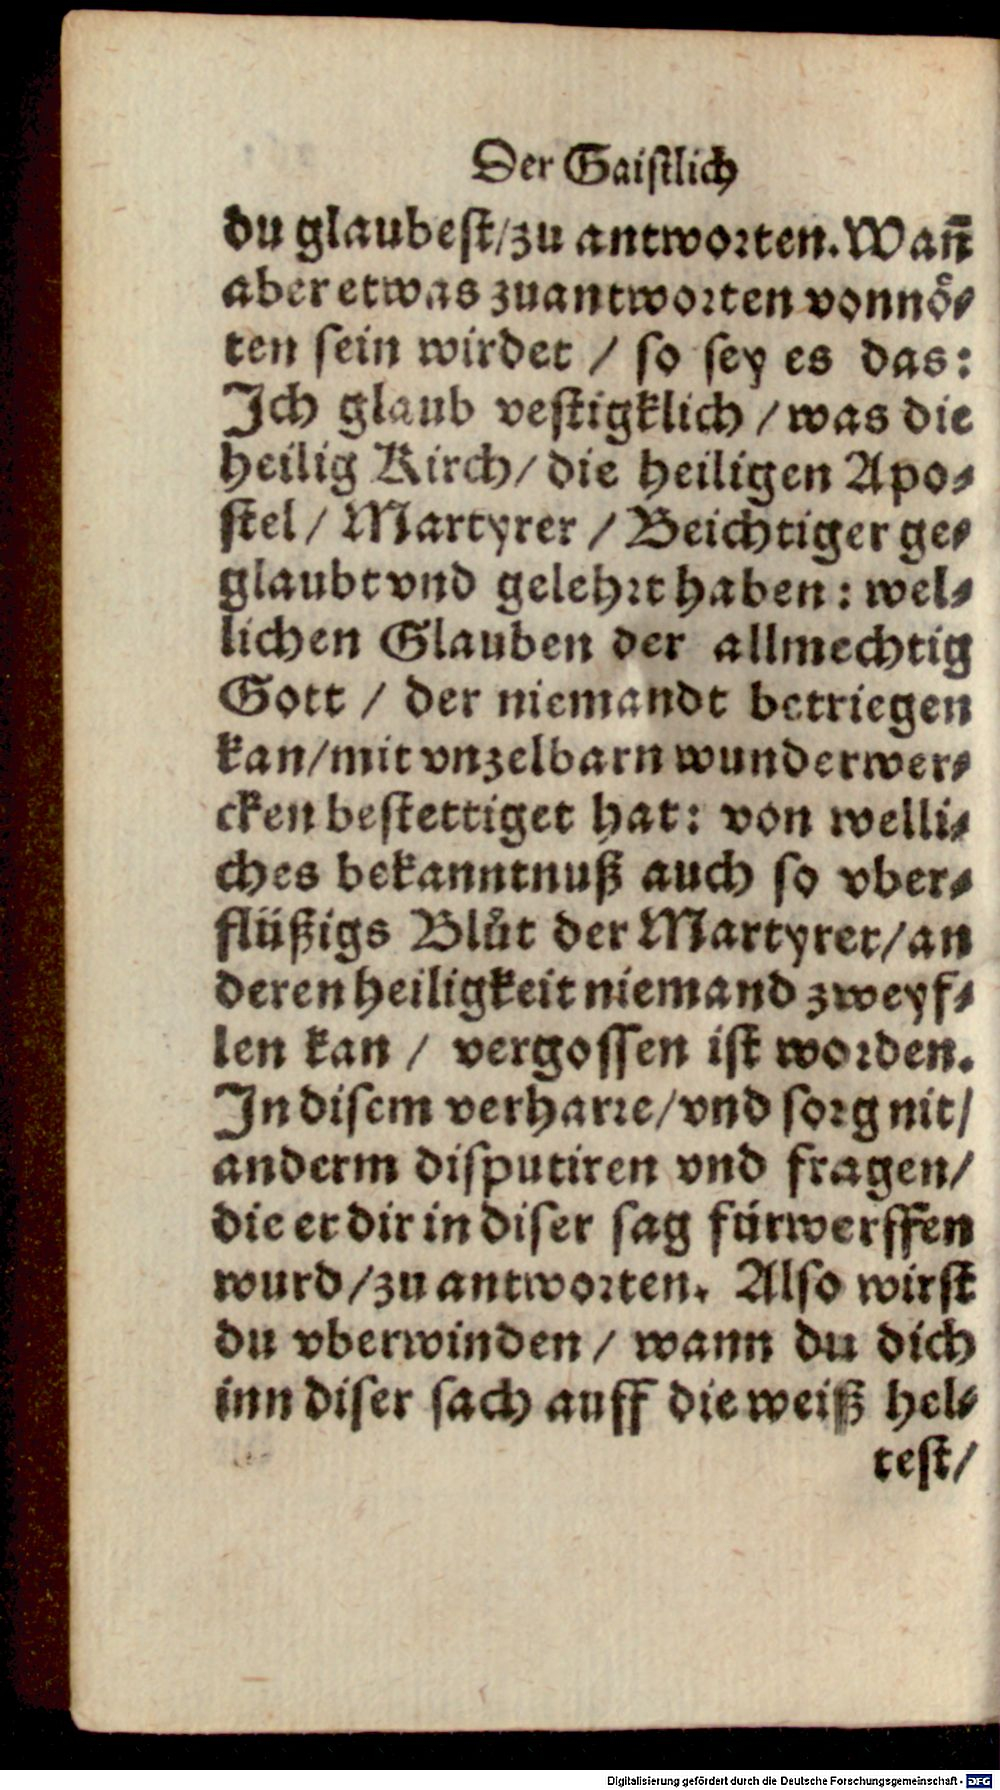 Der Gaistlich
du glaubest/zu antworten. Wañ
aber etwas zuantworten vonnöͤ-
ten sein wirdet / so sey es das:
Ich glaub vestigklich / was die
heilig Kirch/ die heiligen Apo-
stel / Martyrer / Beichtiger ge-
glaubt vnd gelehrt haben: wel-
lichen Glauben der allmechtig
Gott / der niemandt betriegen
kan/mit vnzelbarn wunderwer-
cken bestettiget hat: von welli-
ches bekanntnuß auch so vber-
flüßigs Blůt der Martyrer/an
deren heiligkeit niemand zweyf-
len kan / vergossen ist worden.
In disem verharre/vnd sorg nit/
anderm disputiren vnd fragen/
die er dir in diser sag fürwerffen
wurd/zu antworten. Also wirst
du vberwinden / wann du dich
inn diser sach auff die weiß hel-
test/
Digitalisierung gefördert durch die Deutsche Forschungsgemeinschaft - DFG